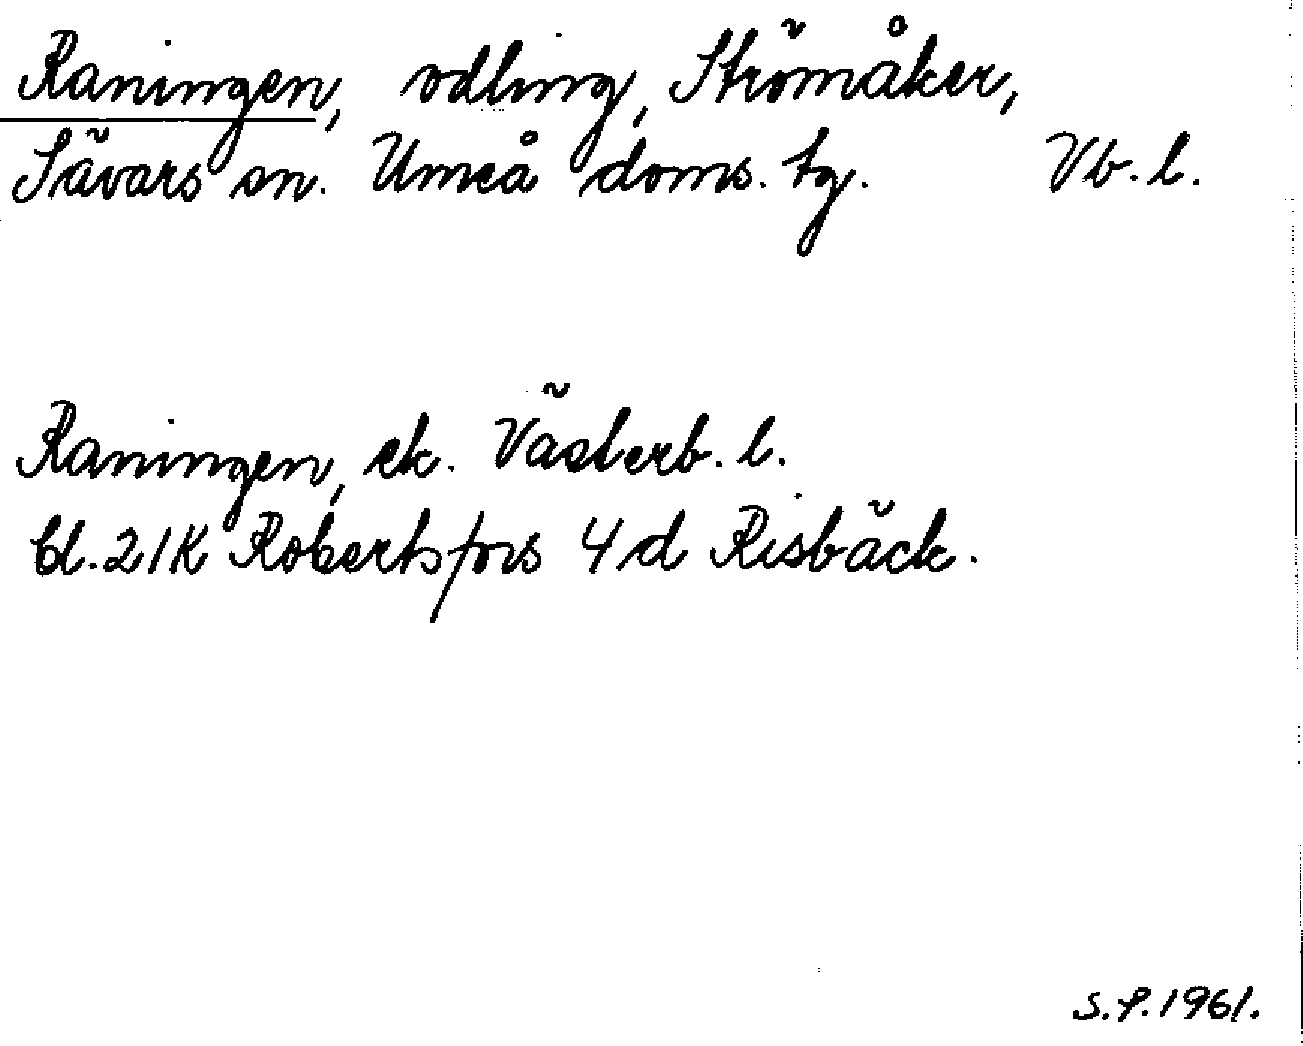 Raningen, odling, Strömåker,
Sävars sn. Umeå doms. tg. Vb. l.
Raningen, ek. Västerb. l.
bl. 21K Robertsfors 4d Risbäck.
S.P. 1961.